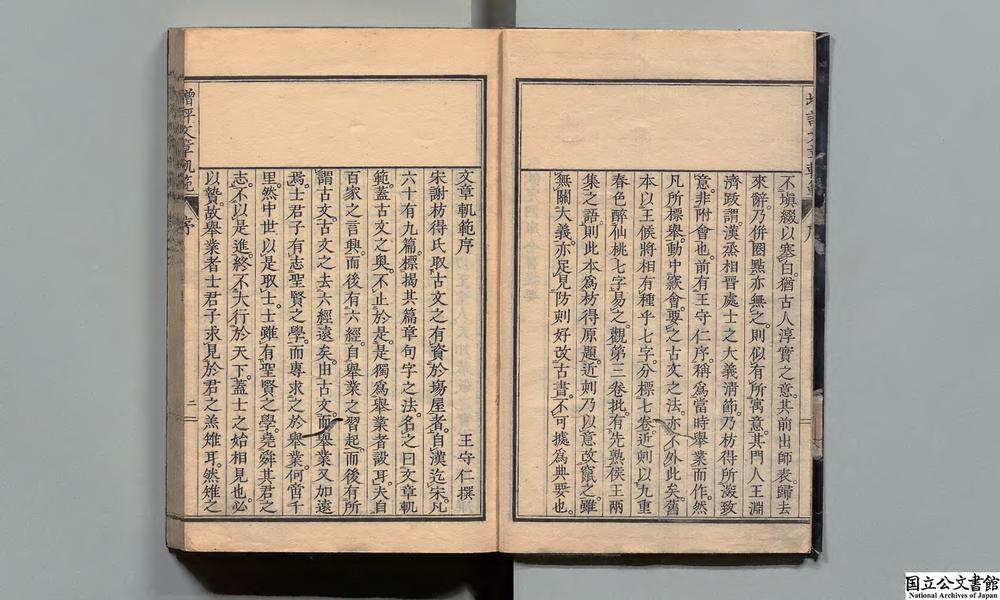 不塡綴以塞白猶古人淳實之意其前出師表歸去
來辭乃併圈點亦無之則似有所寓意其門人王淵
濟跋謂漢丞相晉處士之大義淸節乃枋得所深致
意非附會也前有王守仁序稱爲當時舉業而作然
凡所標舉動中窾會要之古文之法亦不外此矣舊
本以王侯將相有種乎七字分標七卷近刻以九重
春色醉仙桃七字易之觀第三卷批有先熟侯王兩
集之語則此本爲枋得原題近刻乃以意改竄之雖
無關大義亦足見坊刻好改古書不可據爲典要也
文章軌範序
王守仁撰
宋謝枋得氏取古文之有資於場屋者自漢迄宋凡
六十有九篇標揭其篇章句字之法名之曰文章軌
範蓋古文之奥不止於是是獨爲舉業者設耳夫自
百家之言興而後有六經自舉業之習起而後有所
謂古文古文之去六經遠矣由古文而舉業又加遠
焉士君子有志聖賢之學而專求之於舉業何啻千
里然中世以是取士士雖有聖賢之學堯舜其君之
志不以是進終不大行於天下蓋士之始相見也必
以贄故舉業者士君子求見於君之羔雉耳然雉之
增評文章軌範
序
二
国立公文書館
National Archives of Japan